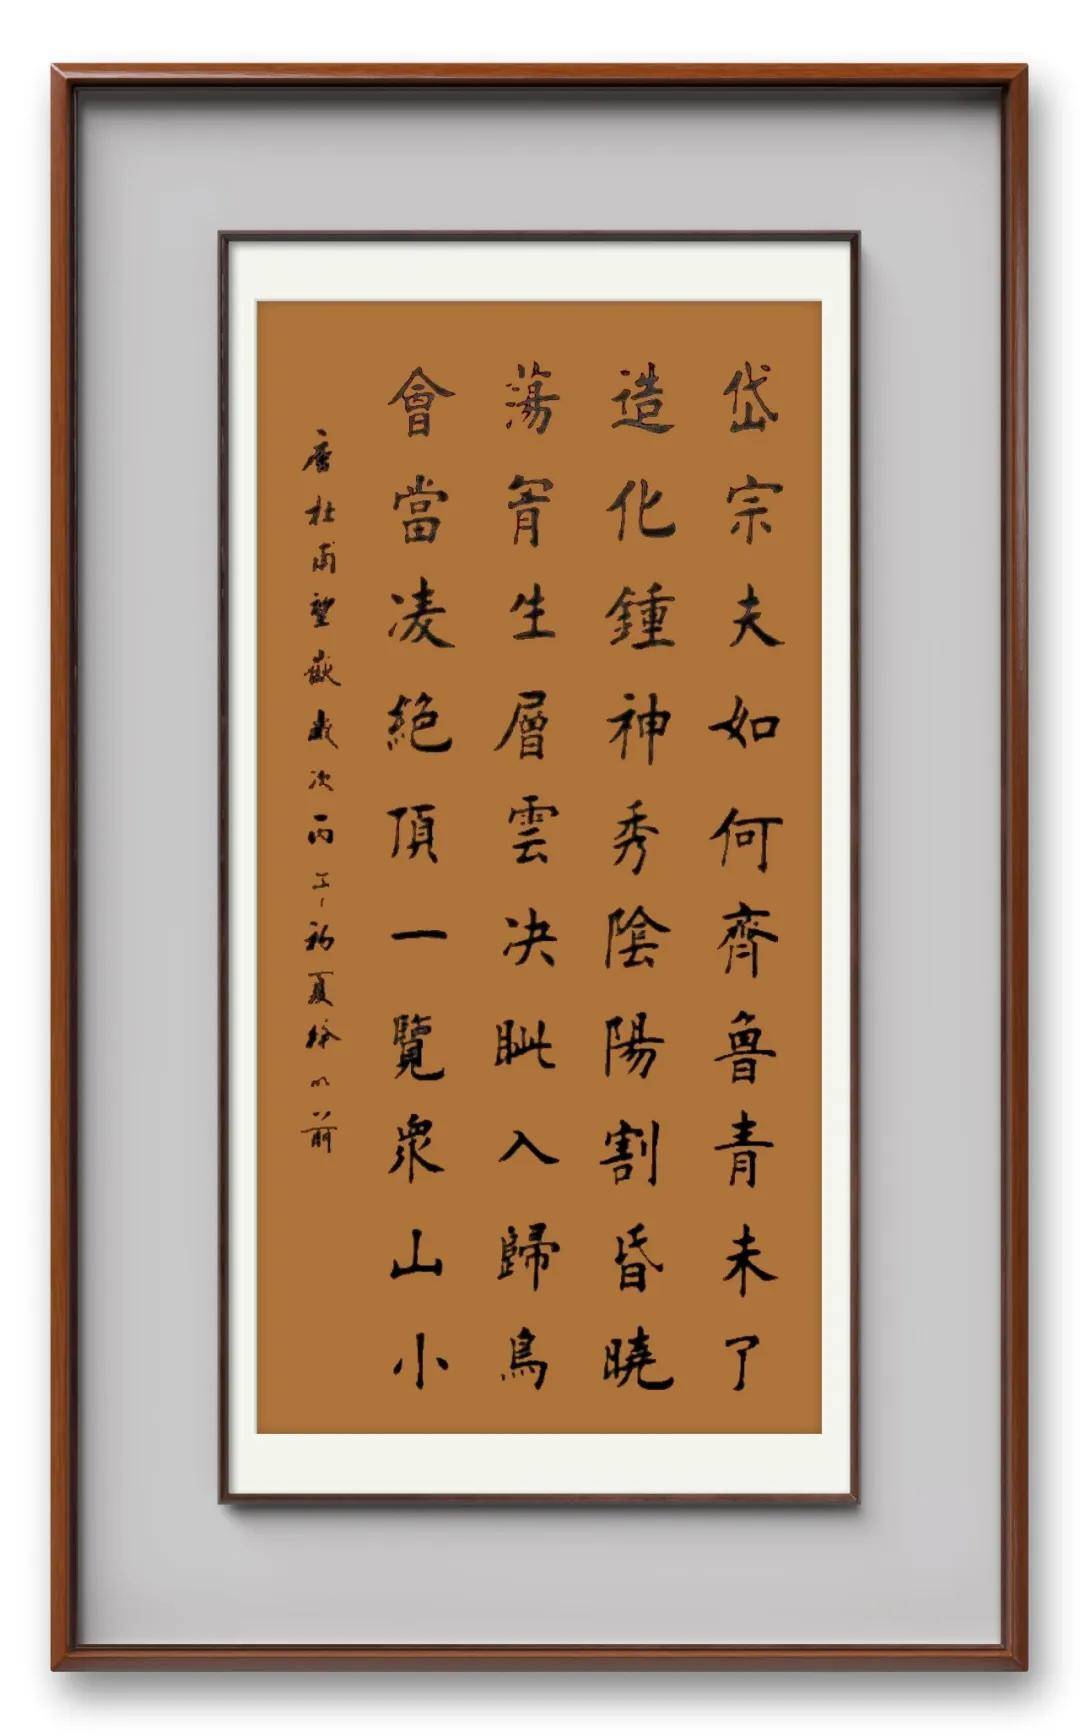 岱宗夫如何齊魯青未了
造化鍾神秀陰陽割昏曉
蕩胷生層雲决眦入歸鳥
會當凌絶頂一覽衆山小
唐杜甫望嶽歲次丙午初夏徐